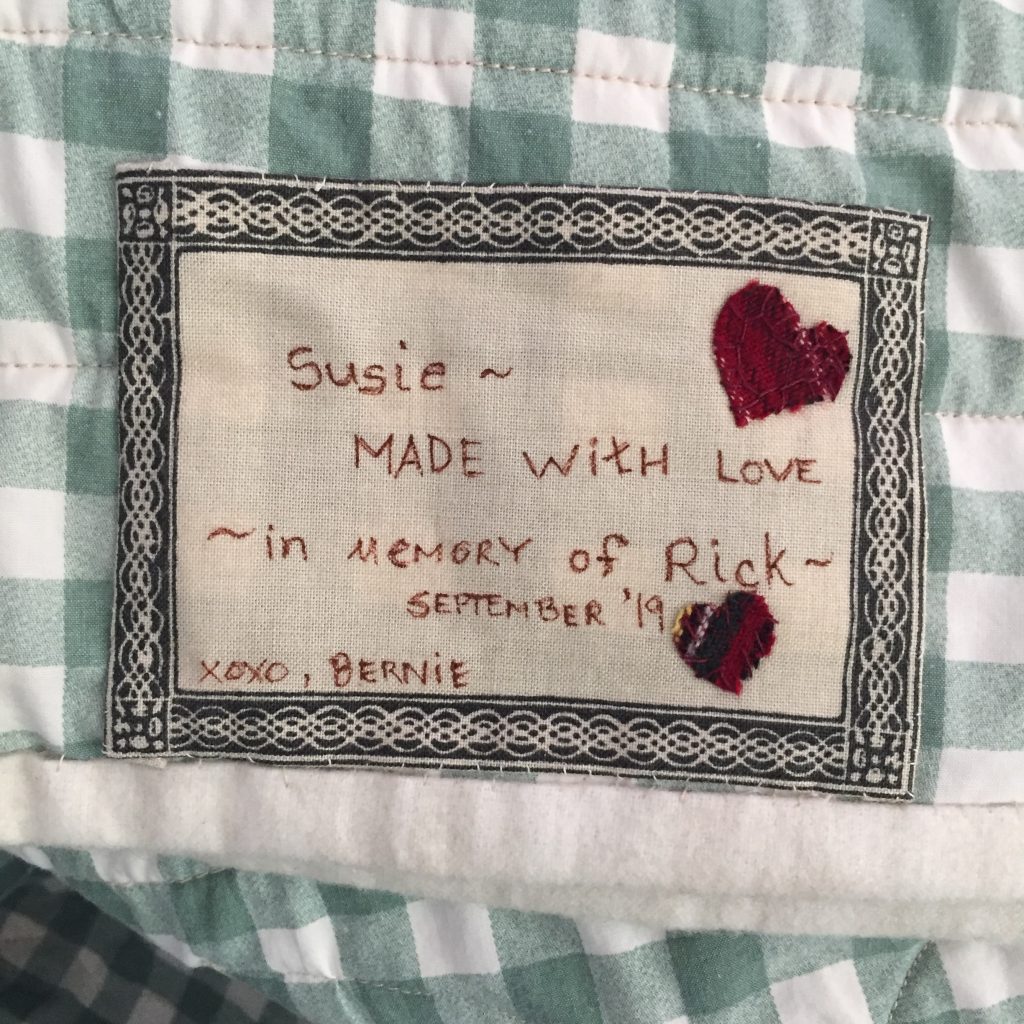 Susie ~
MADE WITH LOVE
~ in MEMORY of Rick ~
SEPTEMBER '19
XOXO, BERNIE